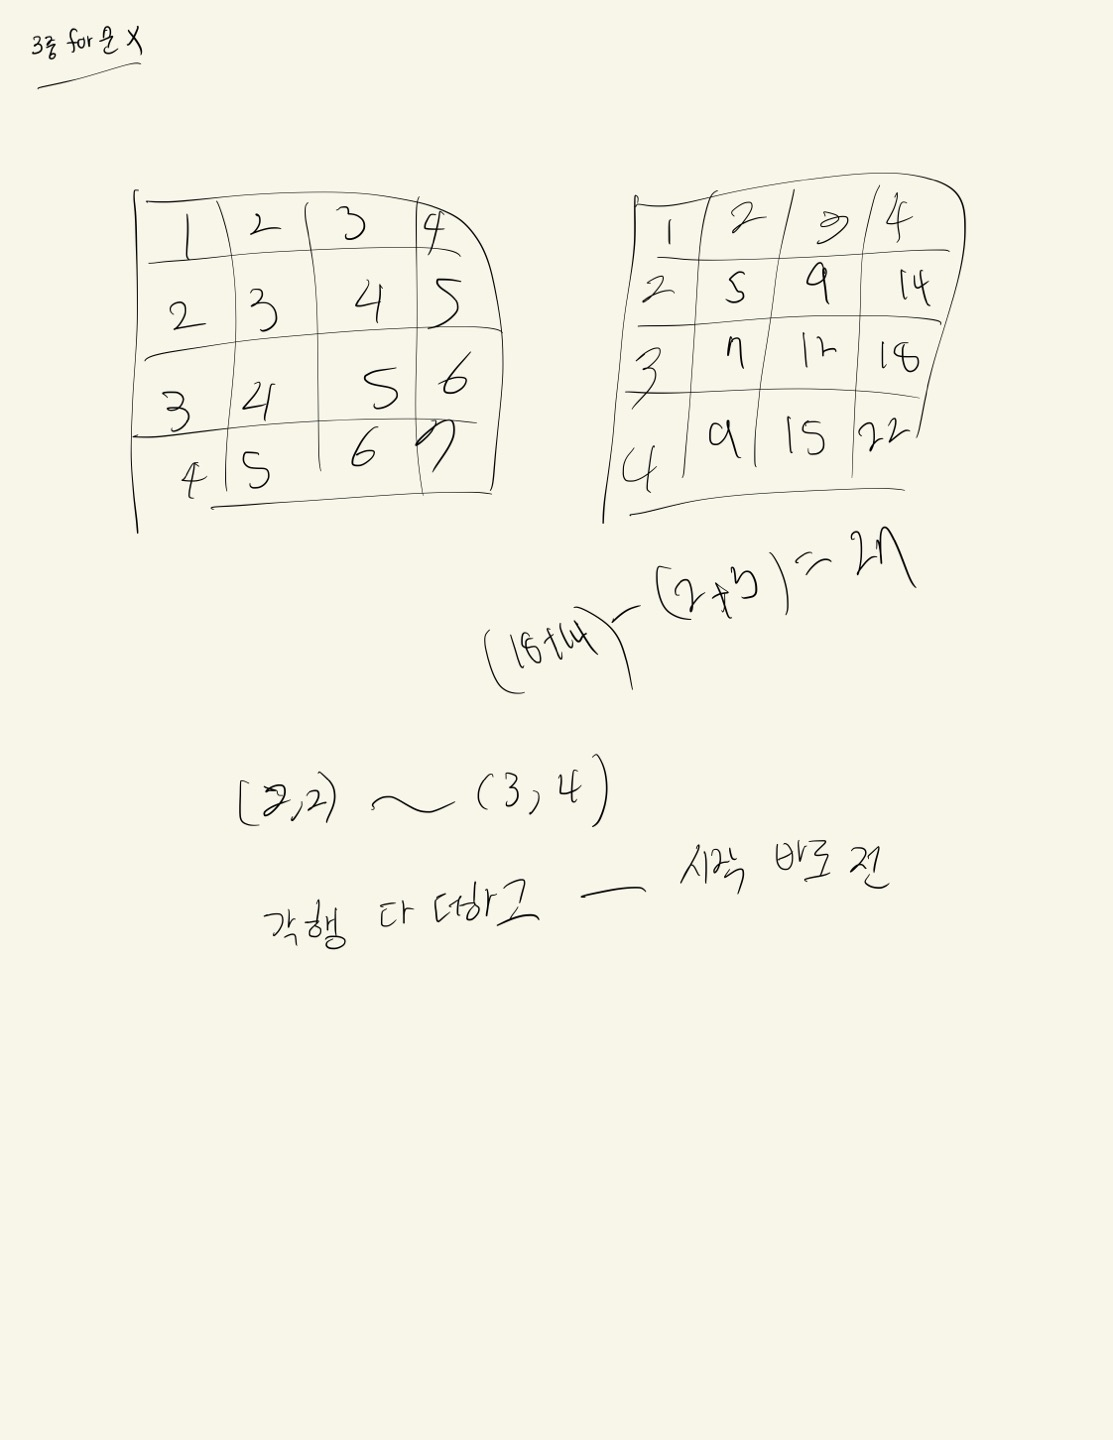 3중 for문 X
1 2 3 4
2 3 4 5
3 4 5 6
4 5 6 7
1 2 3 4
2 5 9 14
3 7 12 18
4 9 15 22
(18+14) - (2+3) = 27
(2,2) ~ (3,4)
각행 다 더하고 — 시작 바로 전